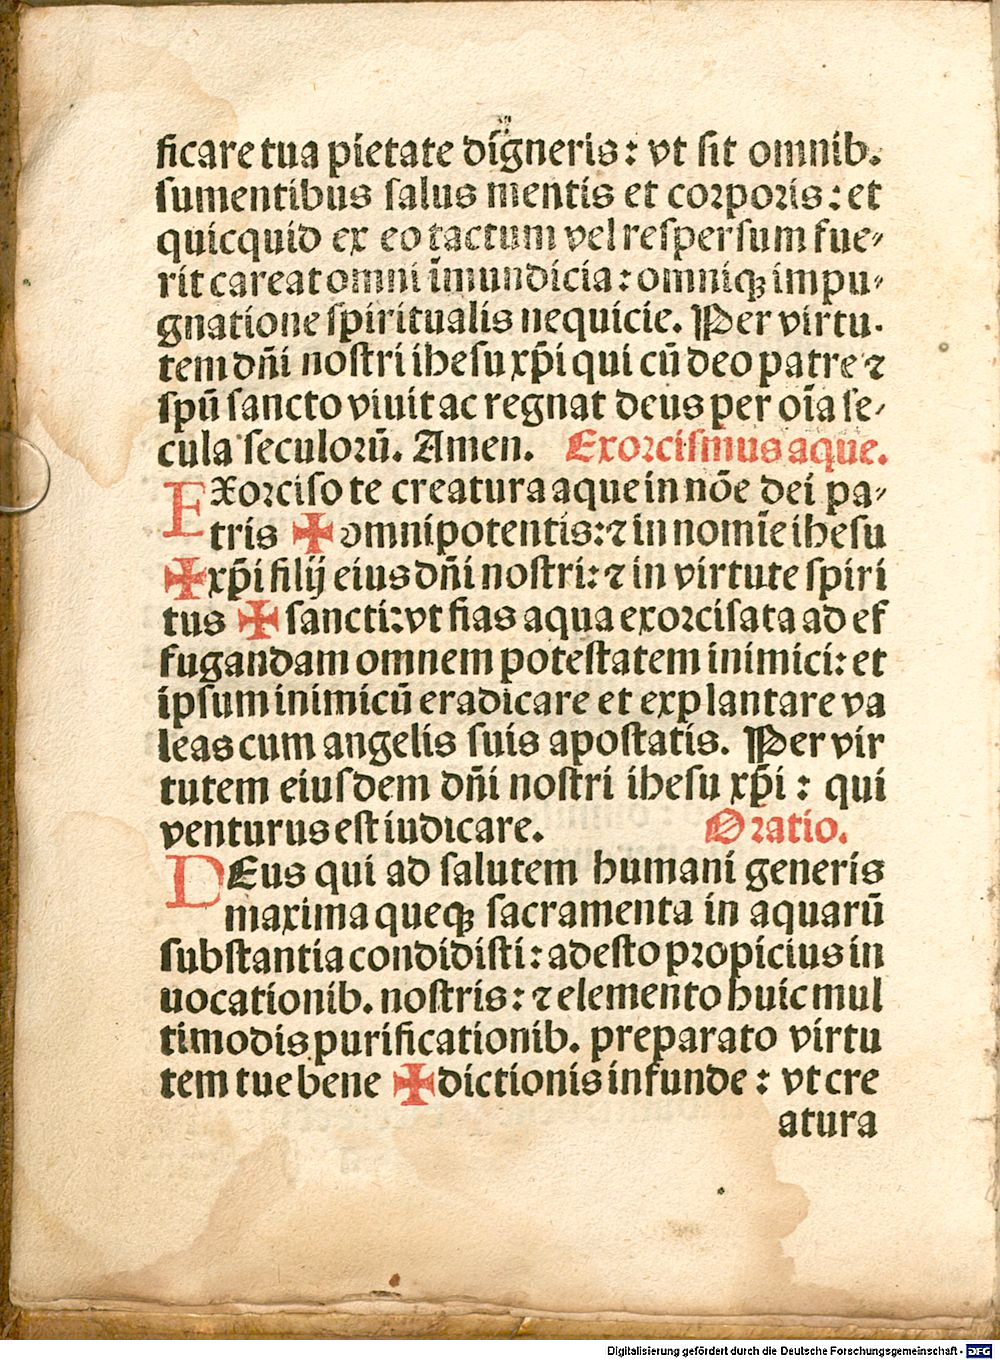 ficare tua pietate digneris: vt sit omnib.
sumentibus salus mentis et corporis: et
quicquid ex eo tactum vel respersum fue-
rit careat omni īmundicia: omniqꝫ impu-
gnatione spiritualis nequicie. Per virtu-
tem dn̄i nostri ihesu xp̄i qui cū deo patre ⁊
spū sancto viuit ac regnat deus per oīa se-
cula seculorū. Amen. Exorcismus aque.
EXorciso te creatura aque in nōe dei pa-
tris ✠ omnipotentis: ⁊ in nomīe ihesu
✠ xp̄i filij eius dn̄i nostri: ⁊ in virtute spiri
tus ✠ sancti: vt fias aqua exorcisata ad ef
fugandam omnem potestatem inimici: et
ipsum inimicū eradicare et explantare va
leas cum angelis suis apostatis. Per vir
tutem eiusdem dn̄i nostri ihesu xp̄i: qui
venturus est iudicare. Oratio.
DEus qui ad salutem humani generis
maxima queqꝫ sacramenta in aquarū
substantia condidisti: adesto propicius in
uocationib. nostris: ⁊ elemento huic mul
timodis purificationib. preparato virtu
tem tue bene ✠ dictionis infunde: vt cre
atura
Digitalisierung gefördert durch die Deutsche Forschungsgemeinschaft - DFG